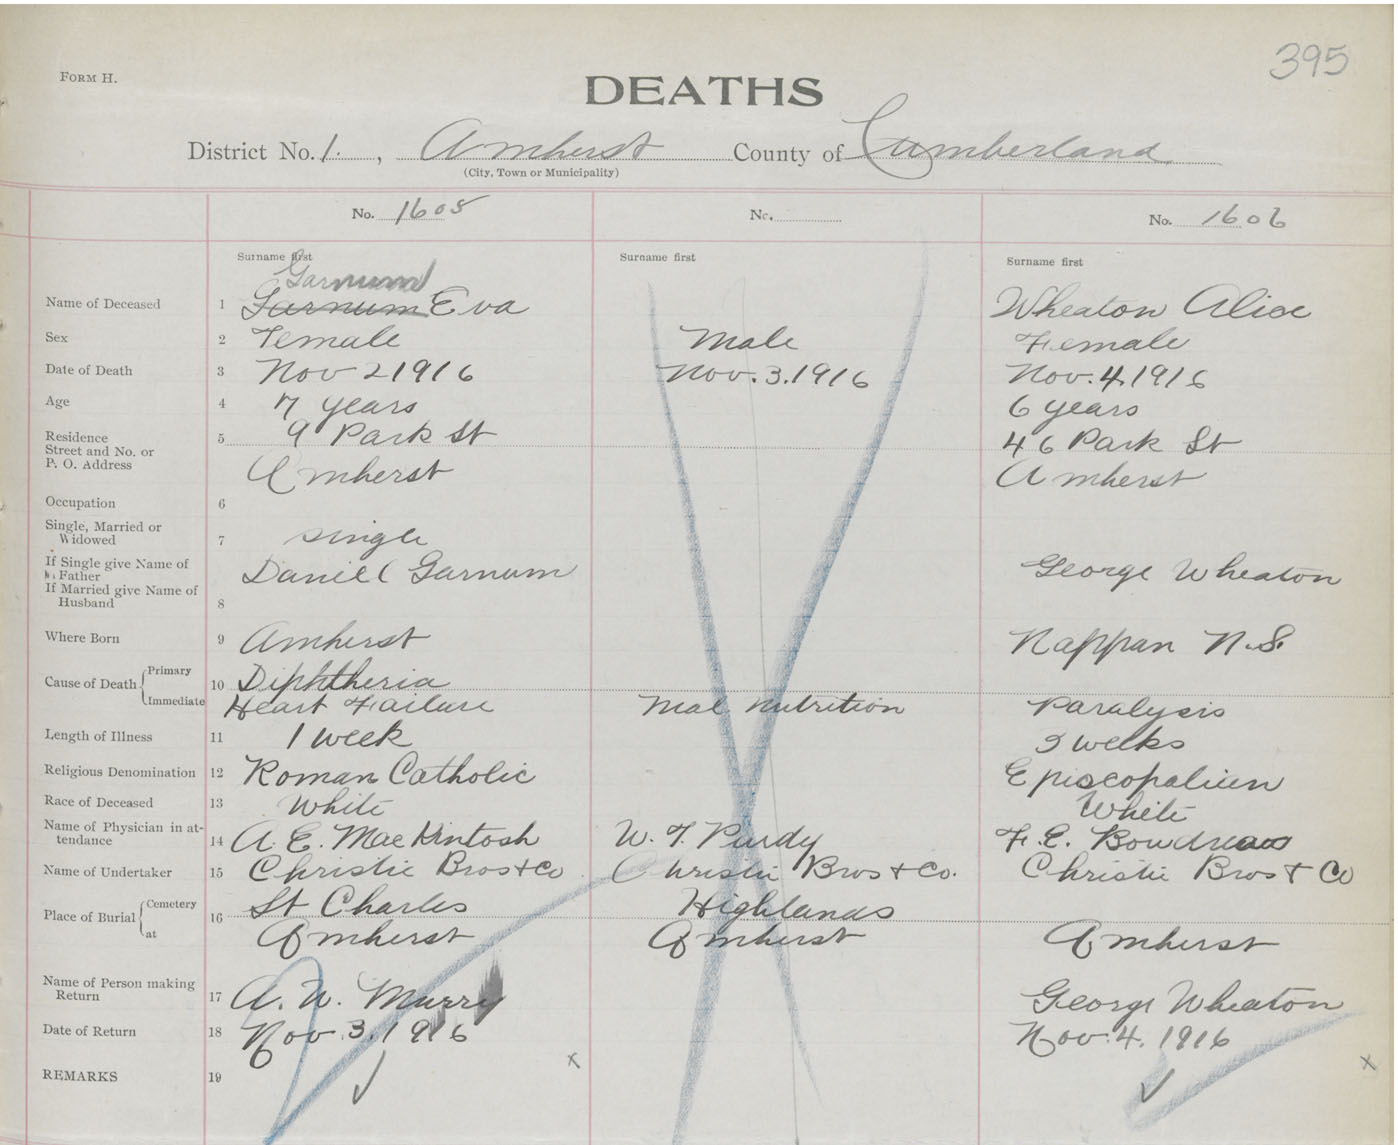 395
FORM H.
DEATHS
District No. 1. , Amherst County of Cumberland
(City, Town or Municipality)
No. 1605 No. No. 1606
Surname first Surname first Surname first
Garnum
Name of Deceased 1 Garnum Eva Wheaton Alice
Sex 2 Female Male Female
Date of Death 3 Nov 2 1916 Nov. 3. 1916 Nov. 4 1916
Age 4 7 years 6 years
Residence 5 9 Park St 46 Park St
Street and No. or
P. O. Address Amherst Amherst
Occupation 6
Single, Married or
Widowed 7 single
If Single give Name of
Father Daniel Garnum George Wheaton
If Married give Name of
Husband 8
Where Born 9 Amherst Nappan N.S.
Cause of Death Primary 10 Diphtheria
Immediate Heart Failure Mal nutrition Paralysis
Length of Illness 11 1 week 3 weeks
Religious Denomination 12 Roman Catholic Episcopalien
Race of Deceased 13 White White
Name of Physician in at-
tendance 14 A. E. MacKintosh W. T. Purdy F. E. Boudreau
Name of Undertaker 15 Christie Bros + Co Christie Bros + Co. Christie Bros + Co
Place of Burial Cemetery 16 St Charles Highlands
at Amherst Amherst Amherst
Name of Person making
Return 17 A. W. Murry George Wheaton
Date of Return 18 Nov. 3. 1916 Nov. 4. 1916
REMARKS 19 x x